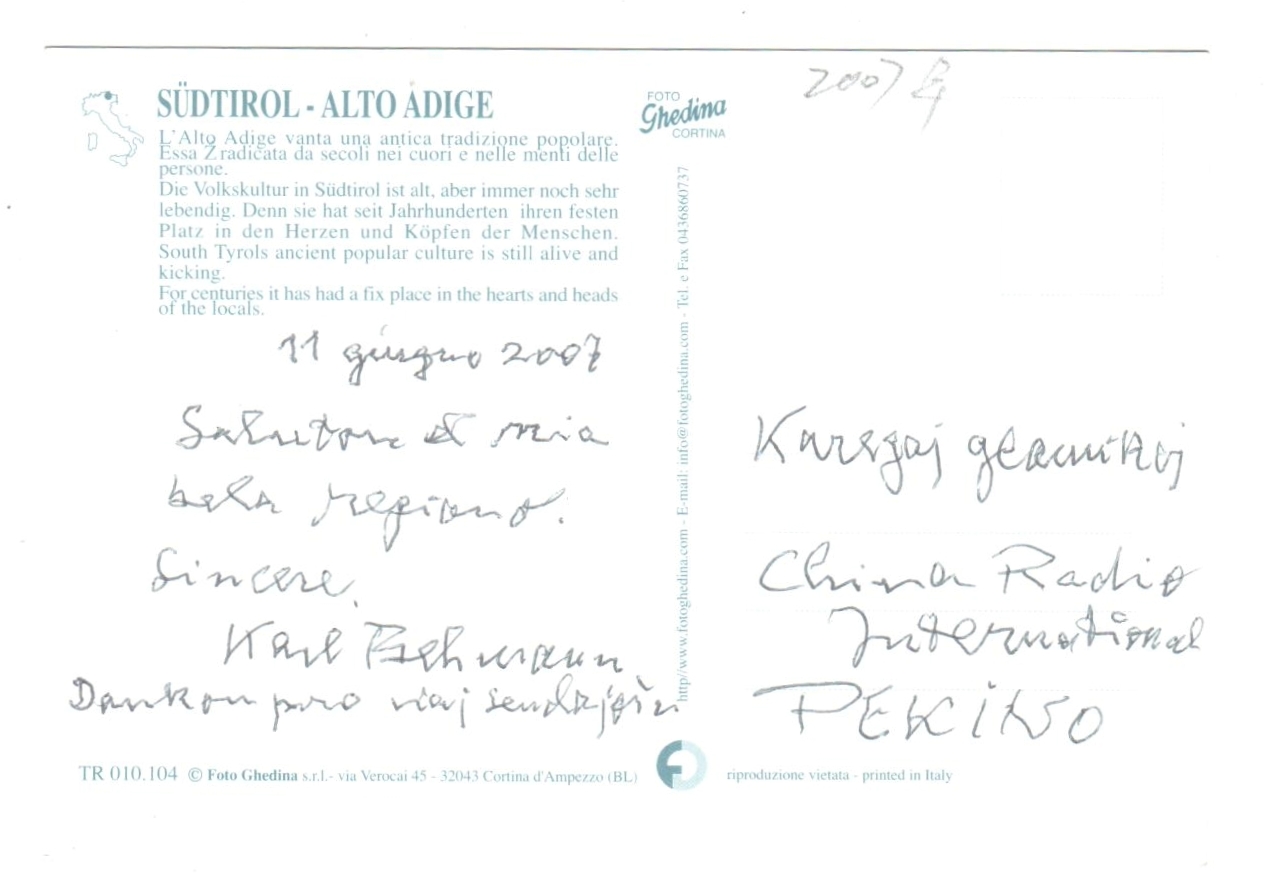 SÜDTIROL - ALTO ADIGE
L'Alto Adige vanta una antica tradizione popolare.
Essa Žradicata da secoli nei cuori e nelle menti delle
persone.
Die Volkskultur in Südtirol ist alt, aber immer noch sehr
lebendig. Denn sie hat seit Jahrhunderten ihren festen
Platz in den Herzen und Köpfen der Menschen.
South Tyrols ancient popular culture is still alive and
kicking.
For centuries it has had a fix place in the hearts and heads
of the locals.
11 giugno 2007
Saluton el mia
bela regiono.
Sincere,
Karl
Dankon pro viaj
TR 010.104 © Foto Ghedina s.r.l.- via Verocai 45 - 32043 Cortina d'Ampezzo (BL)
FOTO
Ghedina
CORTINA
http//www.fotoghedina.com - E-mail: info@fotoghedina.com - Tel. e Fax 0436860737
2007年
Karegaj
China Radio
International
PEKINO
riproduzione vietata - printed in Italy